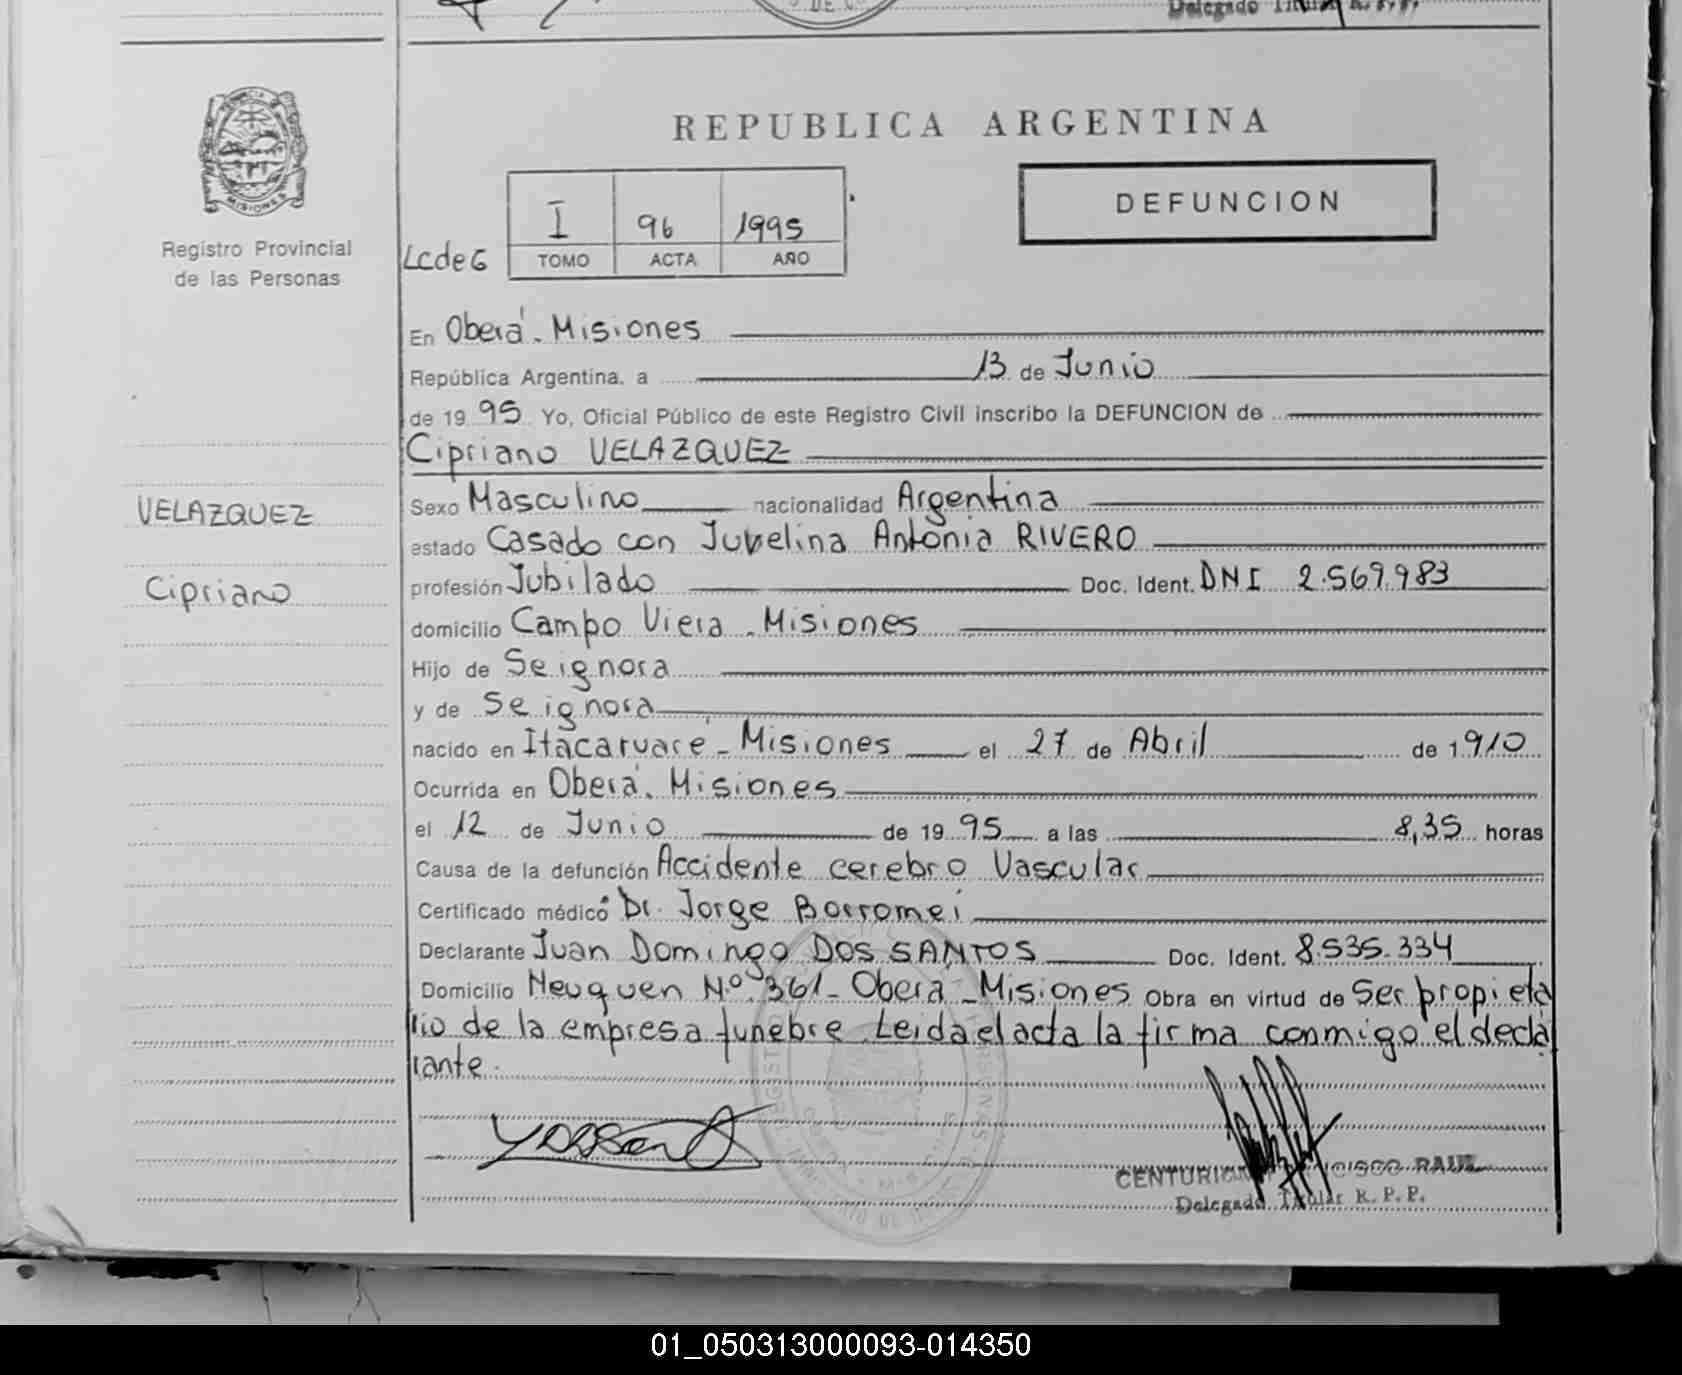 Delegado Titular R. P. P.
REPUBLICA ARGENTINA
DEFUNCION
I 96 1995
TOMO ACTA AÑO
LcdeG
MISIONES
Registro Provincial
de las Personas
VELAZQUEZ
Cipriano
En Oberá. Misiones
República Argentina, a 13 de Junio
de 1995 Yo, Oficial Público de este Registro Civil inscribo la DEFUNCION de
Cipriano VELAZQUEZ
Sexo Masculino nacionalidad Argentina
estado Casado con Juvelina Antonia RIVERO
profesión Jubilado Doc. Ident. DNI 2.569.983
domicilio Campo Viera . Misiones
Hijo de Se ignora
y de Se ignora
nacido en Itacaruaré - Misiones el 27 de Abril de 1910
Ocurrida en Oberá. Misiones
el 12 de Junio de 1995 a las 8,35 horas
Causa de la defunción Accidente cerebro Vascular
Certificado médico Dr. Jorge Borromei
Declarante Juan Domingo DOS SANTOS Doc. Ident. 8.535.334
Domicilio Neuquen Nº 361 - Oberá - Misiones Obra en virtud de Ser propieta
rio de la empresa funebre. Leida el acta la firma conmigo el decla
rante.
CENTURION FRANCISCO RAUL
Delegado Titular R. P. P.
01_050313000093-014350